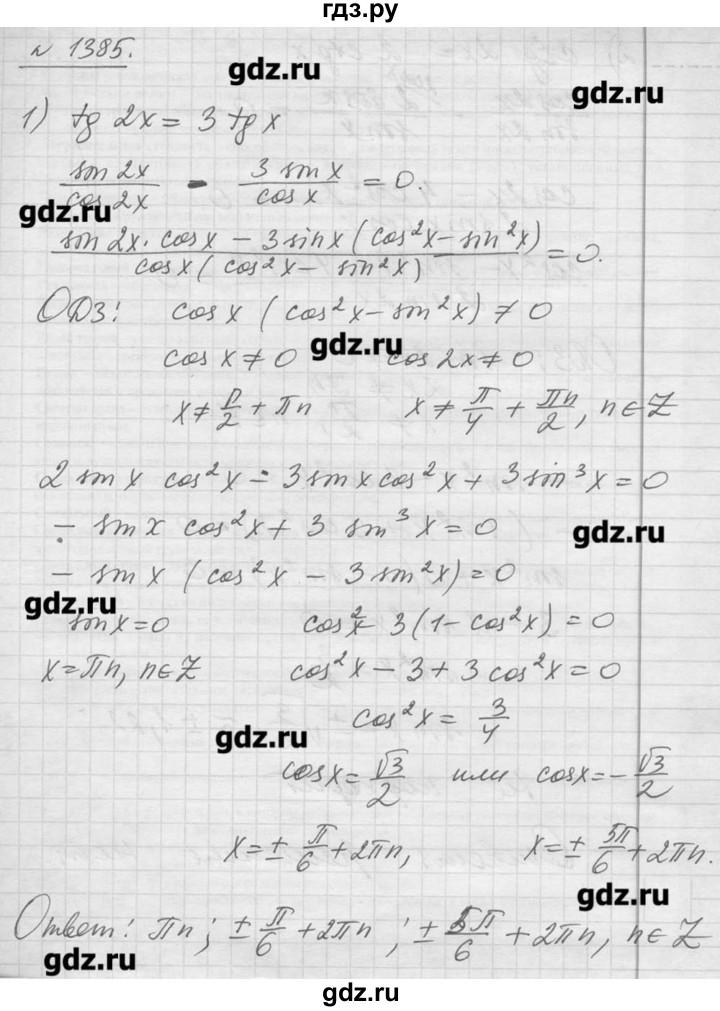 гдз.ру
№ 1385.
gdz.ru
gdz.ru
1) tg 2x = 3 tg x
sin 2x / cos 2x - 3 sin x / cos x = 0.
gdz.ru
sin 2x · cos x − 3 sin x (cos²x − sin²x) / cos x (cos²x − sin²x) = 0.
ОДЗ: cos x (cos²x − sin²x) ≠ 0
gdz.ru
cos x ≠ 0 cos 2x ≠ 0
x ≠ π/2 + πn x ≠ π/4 + πn/2, n ∈ Z
2 sin x cos²x − 3 sin x cos²x + 3 sin³x = 0
− sin x cos²x + 3 sin³x = 0
gdz.ru
− sin x (cos²x − 3 sin²x) = 0
gdz.ru
sin x = 0 cos²x − 3(1 − cos²x) = 0
x = πn, n ∈ Z cos²x − 3 + 3 cos²x = 0
cos²x = 3/4
gdz.ru
cos x = √3/2 или cos x = −√3/2
x = ± π/6 + 2πn, x = ± 5π/6 + 2πn.
gdz.ru
Ответ: πn; ± π/6 + 2πn; ± 5π/6 + 2πn, n ∈ Z
gdz.ru
gdz.ru